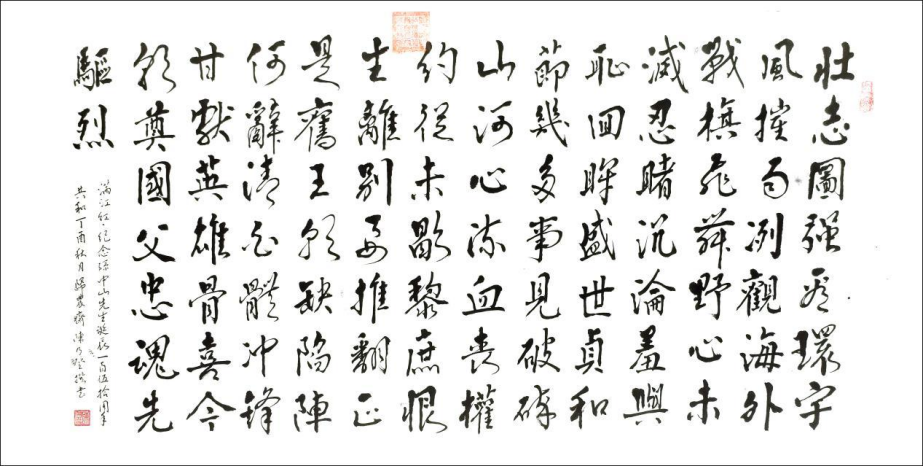 壮志圖强看環宇
風摧雨冽觀海外
戰旗飛舞野心未
滅忍睹沉淪羞與
恥回眸盛世貞和
節幾多事見破碎
山河心流血喪權
約從未歇黎庶恨
生離别要推翻正
是舊王朝缺陷陣
何辭清白體冲鋒
甘獻英雄骨喜今
朝奠國父忠魂先
驅烈
滿江红纪念孫中山先生誕辰一百伍拾周年
共和丁酉秋月歸農齋陳乃撰书